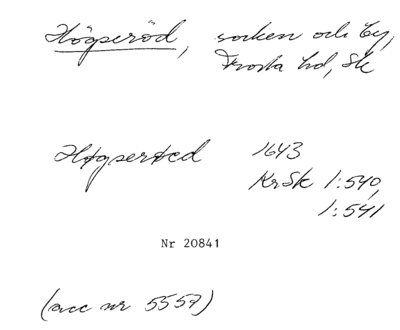 Högseröd, socken och by,
Frosta hd, Sk
Høgserød 1643
KrSk 1:540,
1:541
Nr 20841
(acc nr 5557)